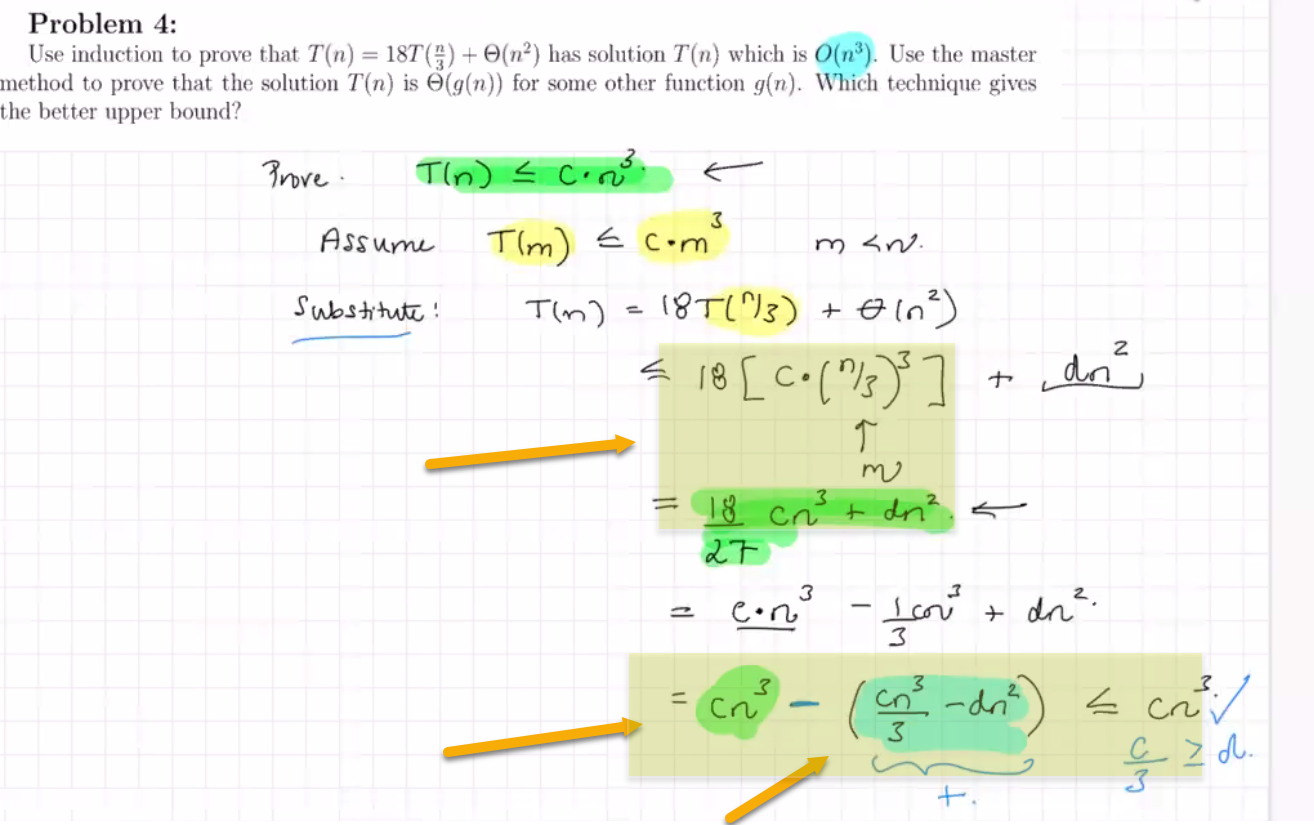 Problem 4:
Use induction to prove that T(n) = 18T(n/3) + Θ(n²) has solution T(n) which is O(n³). Use the master
method to prove that the solution T(n) is Θ(g(n)) for some other function g(n). Which technique gives
the better upper bound?
Prove. T(n) ≤ c·n³. ←
Assume T(m) ≤ c·m³ m < n.
Substitute: T(n) = 18T(n/3) + Θ(n²)
≤ 18[c·(n/3)³] + dn²
↑
m
= 18/27 cn³ + dn². ←
= c·n³ − 1/3 cn³ + dn².
= cn³ − (cn³/3 − dn²) ≤ cn³. ✓
+. c/3 ≥ d.